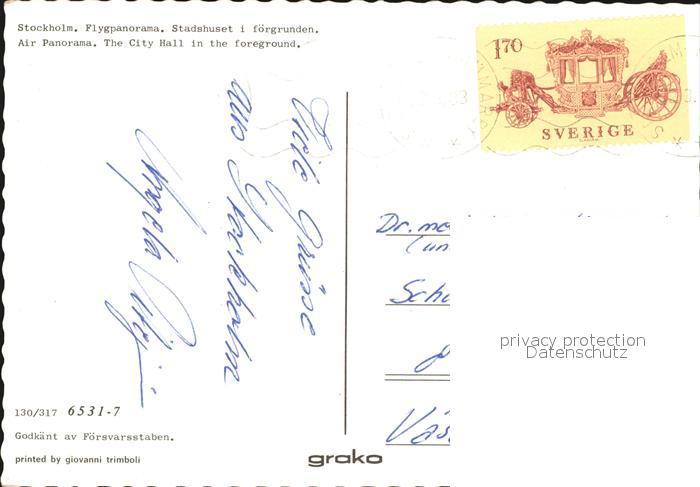 Stockholm. Flygpanorama. Stadshuset i förgrunden.
Air Panorama. The City Hall in the foreground.
1.70
SVERIGE
Viele Grüsse
aus Stockholm
Angela
Dr. me
(un
Sch
Väs
privacy protection
Datenschutz
130/317 6531-7
Godkänt av Försvarsstaben.
printed by giovanni trimboli
grako